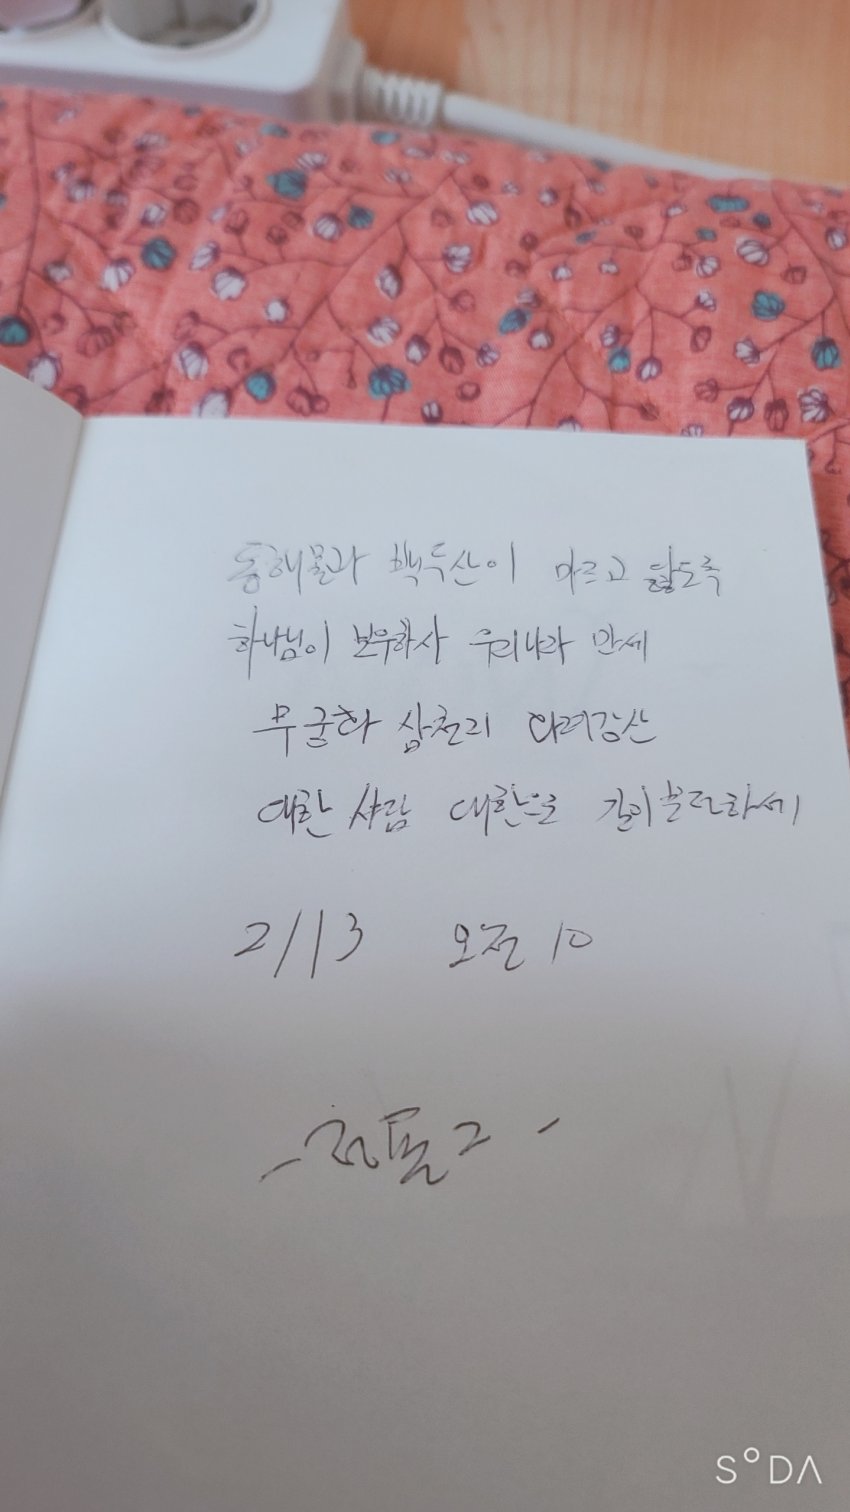 동해물과 백두산이 마르고 닳도록
하나님이 보우하사 우리나라 만세
무궁화 삼천리 화려강산
대한 사람 대한으로 길이 보전하세
2/13 오전 10
SODA